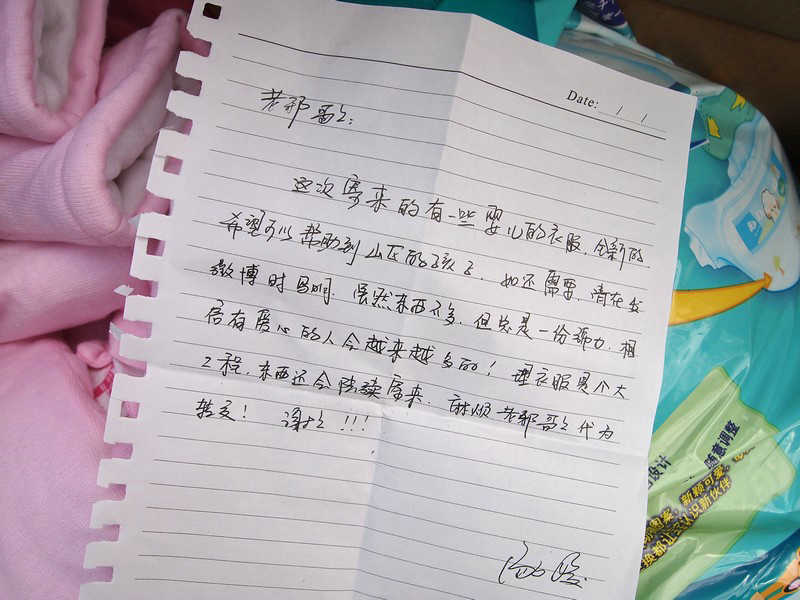 Date: / /
老邪哥哥：
这次寄来的有一些婴儿的衣服，全新的
希望可以帮助到山区的孩子，如还需要，请在发
微博时写明，虽然东西不多，但总是一份努力，相
信有爱心的人会越来越多的！理衣服是个大
工程，东西还会陆续寄来，麻烦老邪哥哥代为
转交！谢谢！！！
随意调整
设计
新颖可爱
识新伙伴